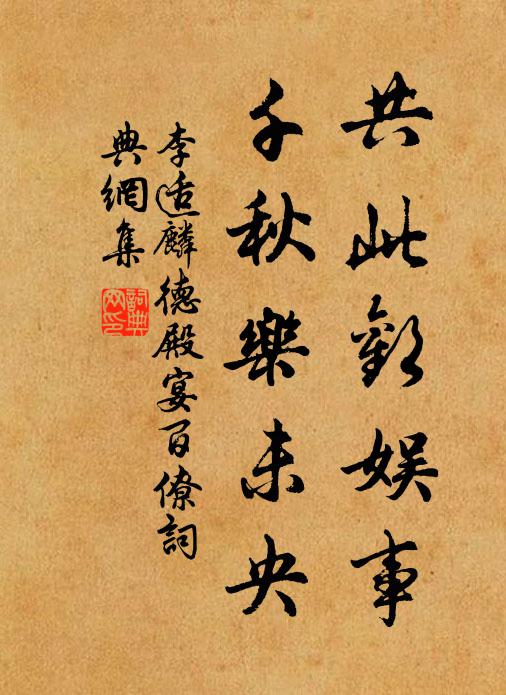 共此歡娱事
千秋樂未央
李适麟德殿宴百僚詞
典網集
詞典網印